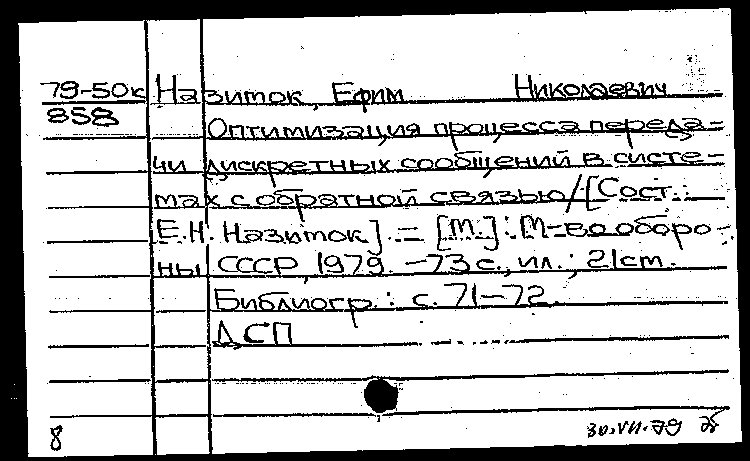 79-50к Назиток, Ефим Николаевич
858
Оптимизация процесса переда-
чи дискретных сообщений в систе-
мах с обратной связью/[Сост.:
Е.Н. Назиток]. — [М.]: М-во оборо-
ны СССР, 1979. — 73 с., ил.; 21 ст.
Библиогр.: с. 71-72.
ДСП
8 30.VII.79